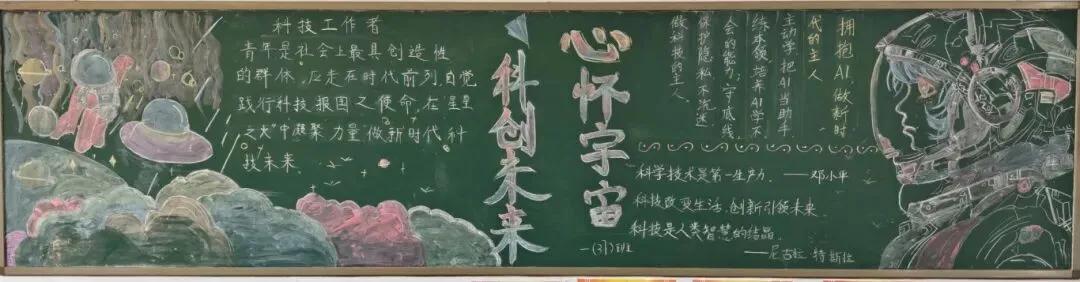 科技工作者
青年是社会上最具创造性
的群体,应走在时代前列,自觉
践行科技报国之使命,在"星星
之火"中凝聚力量做新时代科
技未来.
心怀宇宙
科创未来
拥抱AI,做新时
代的主人
主动学,把AI当助手
练本领,培养AI学不
会的能力;守底线,
保护隐私不沉迷
做科技的主人.
科学技术是第一生产力. ——邓小平
科技改变生活,创新引领未来
科技是人类智慧的结晶.
——尼古拉 特斯拉
一(31)班